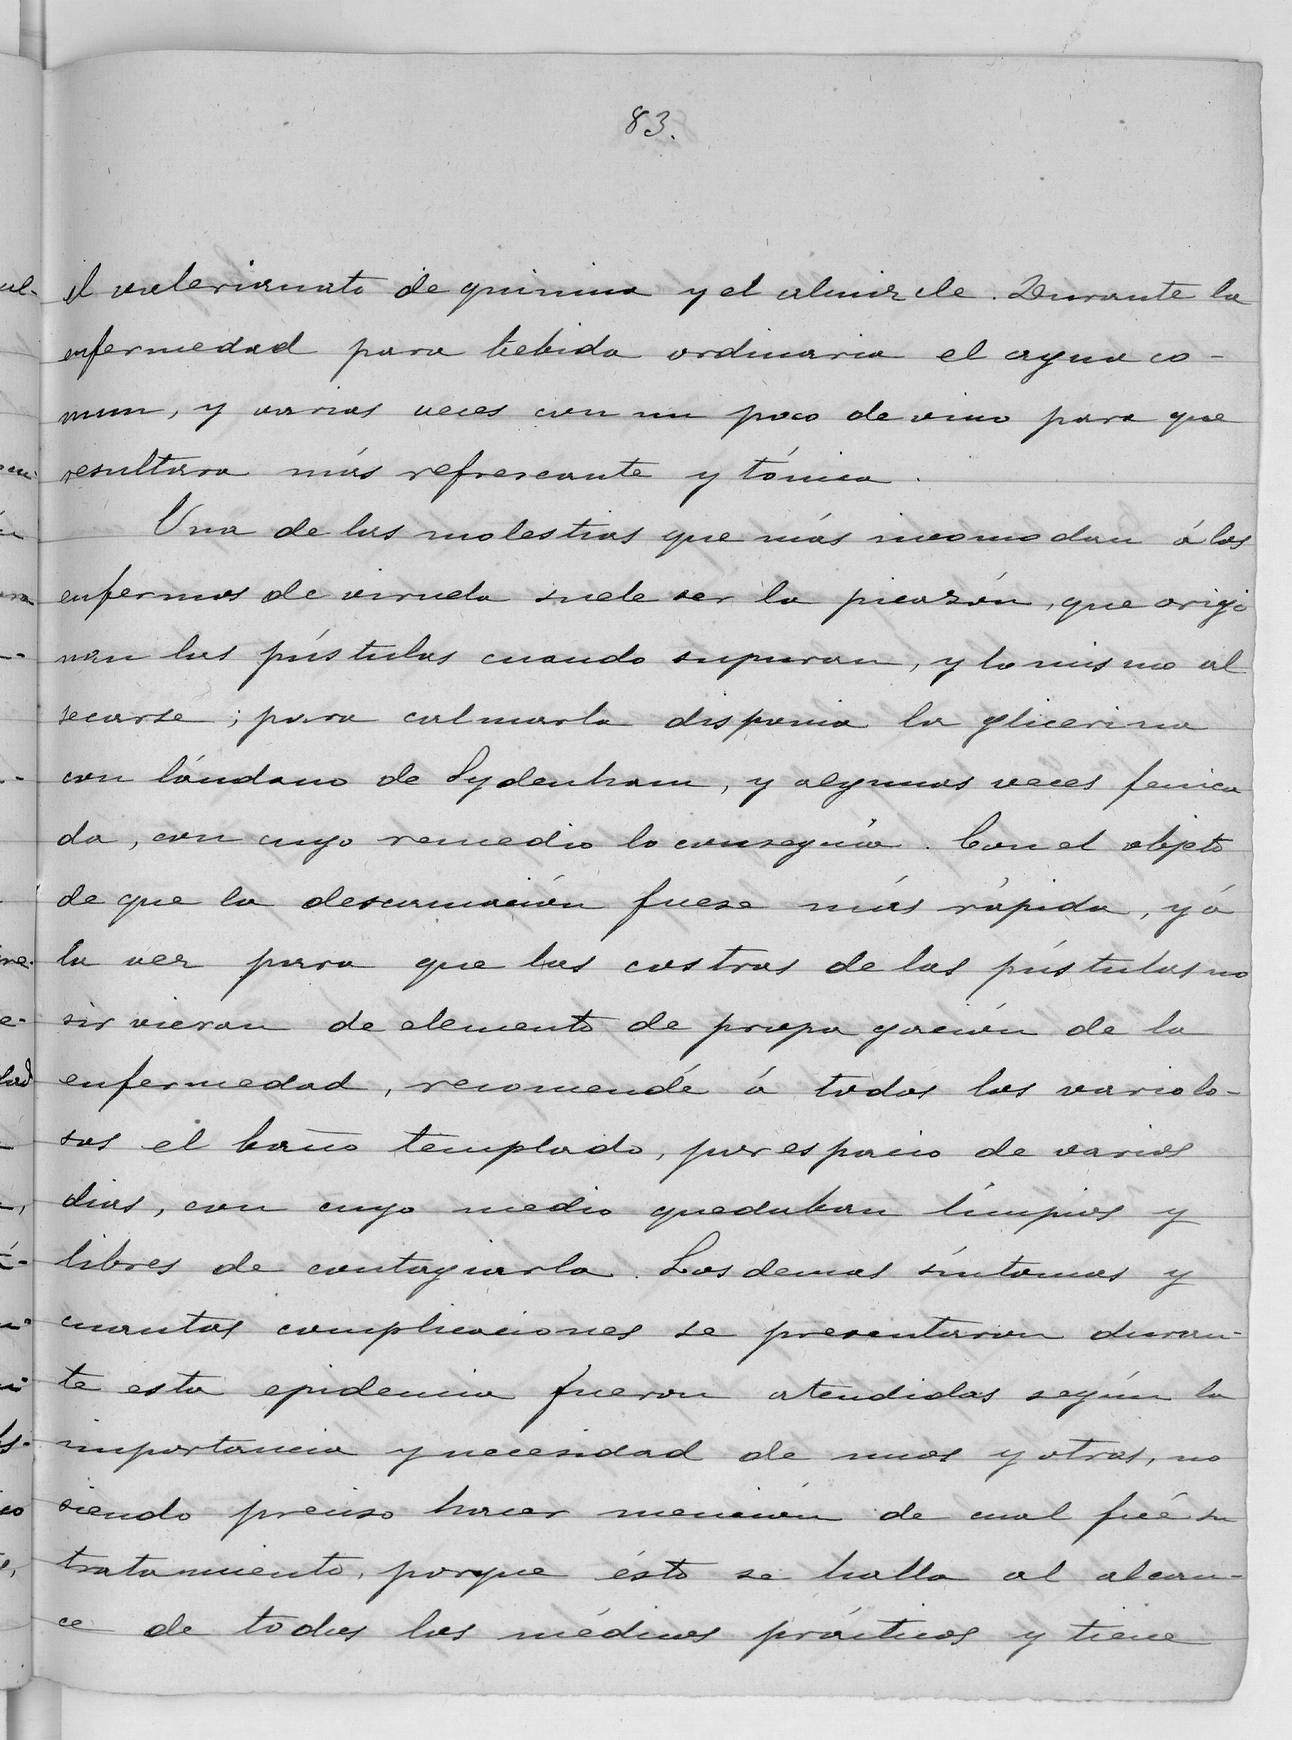 83.
el valerianato de quinina y el almizcle. Durante la
enfermedad para bebida ordinaria el agua co-
mun, y varias veces con un poco de vino para que
resultara más refrescante y tónica.
Una de las molestias que más incomodan á los
enfermos de viruela suele ser la picazón, que origi
nan las pústulas cuando supuran, y lo mismo al
secarse; para calmarla disponia la glicerina
con láudano de Sydenham, y algunas veces fenica
da, con cuyo remedio lo conseguía. Con el objeto
de que la descamación fuese más rápida, y á
la vez para que las costras de las pústulas no
sirvieran de elemento de propagación de la
enfermedad, recomendé á todos los variolo-
sos el baño templado, por espacio de varios
dias, con cuyo medio quedaban limpios y
libres de contagiarla. Los demas síntomas y
cuantas complicaciones se presentaron duran-
te esta epidemia fueron atendidas según la
importancia y necesidad de unos y otras, no
siendo preciso hacer mención de cual fué su
tratamiento, porque ésto se halla al alcan-
ce de todos los médicos prácticos y tiene